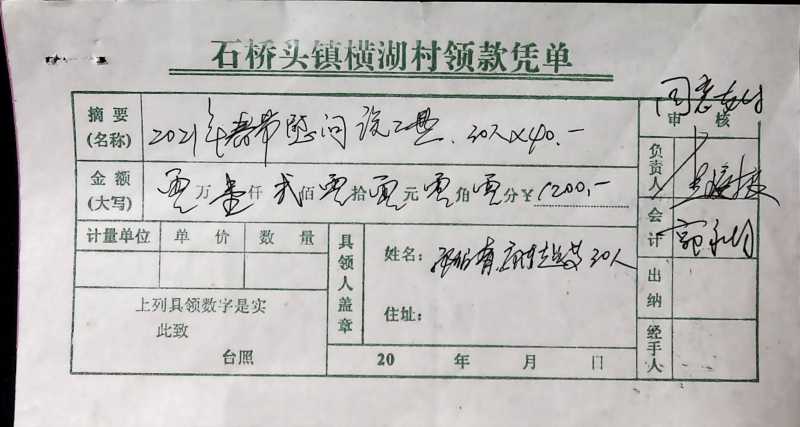 石桥头镇横湖村领款凭单
摘要(名称) 2021年春节慰问 30人×40.-
同意支付
审核
金额(大写) 零万壹仟贰佰零拾零元零角零分¥1200.-
负责人
计量单位 单价 数量 具领人盖章 姓名: 30人
会计
上列具领数字是实
住址:
出纳
此致
台照
20 年 月 日
经手人